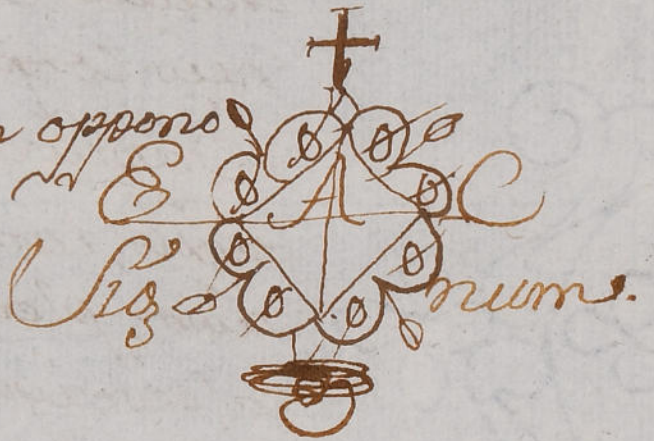 oppono
E A C
Sig num.